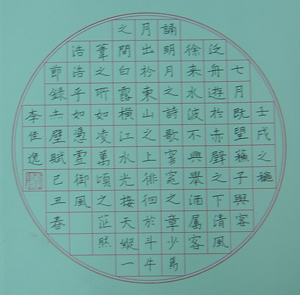 壬戌之龝
七月既望蘇子與客
泛舟遊於赤壁之下清風
徐來水波不興舉酒屬客
誦明月之詩歌窈窕之章少焉
月出於東山之上徘徊於斗牛
之間白露橫江水光接天縱一
葦之所如凌萬頃之茫然
浩浩乎如憑虛御風
節錄赤壁賦春
李